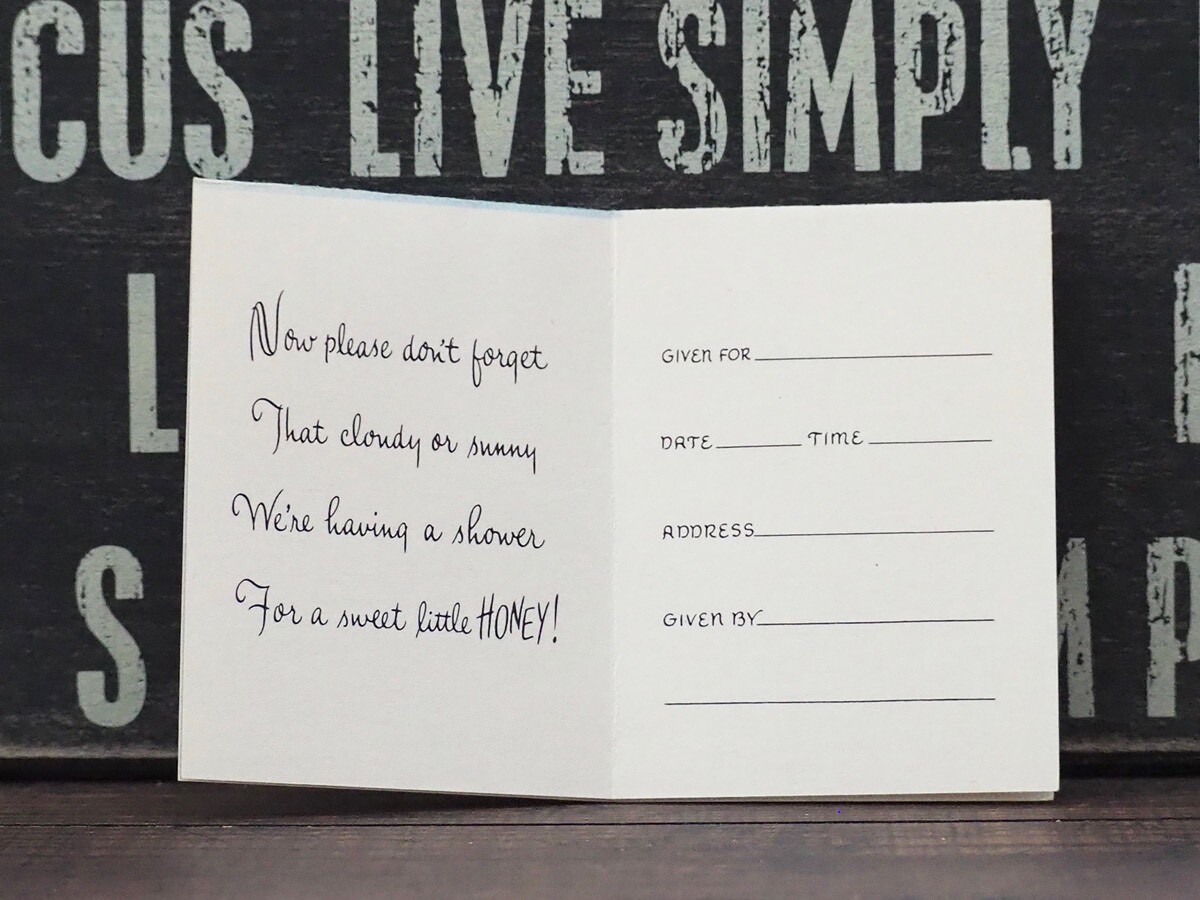 CUS LIVE SIMPLY
L
S
MP
Now please don't forget
That cloudy or sunny
We're having a shower
For a sweet little HONEY!
GIVEN FOR
DATE TIME
ADDRESS
GIVEN BY